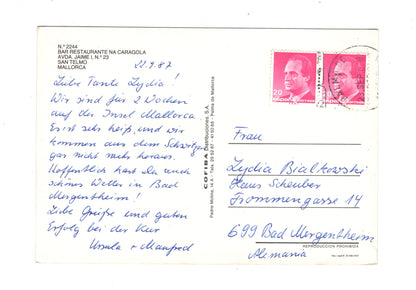 N.º 2244
BAR RESTAURANTE NA CARAGOLA
AVDA. JAIME I, N.º 23
SAN TELMO
MALLORCA
22.9.87
Liebe Tante Lydia!
Wir sind für 2 Wochen
auf der Insel Mallorca
Er ist sehr heiß, und wir
kommen aus dem Schwitzen
gar nicht mehr heraus.
Hoffentlich hast Du auch
schönes Wetter in Bad
Mergentheim!
Liebe Grüße und guten
Erfolg bei der Kur
Ursula + Manfred
COFIBA Distribuciones, S.A.
Padre Molina, 14 A - Tels.
Palma de Mallorca
20
Frau
Lydia Bialkowski
Haus Scheuber
Frommengasse 14
6990 Bad Mergentheim
REPRODUCCION PROHIBIDA
Alemania